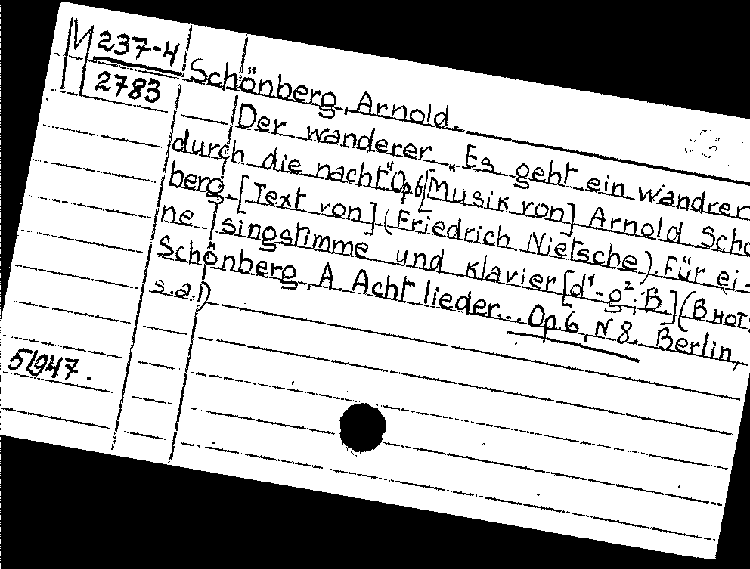 M 237-4
2783
Schönberg, Arnold.
Der wanderer „Es geht ein wandrer
durch die nacht" Op6 [Musik von] Arnold Schö
berg. [Text von] (Friedrich Nietsche). Für ei-
ne singstimme und klavier [d¹-g²; B.] (В нот:
Schönberg, A Acht lieder... Op.6, N 8. Berlin,
s.a.)
51947.